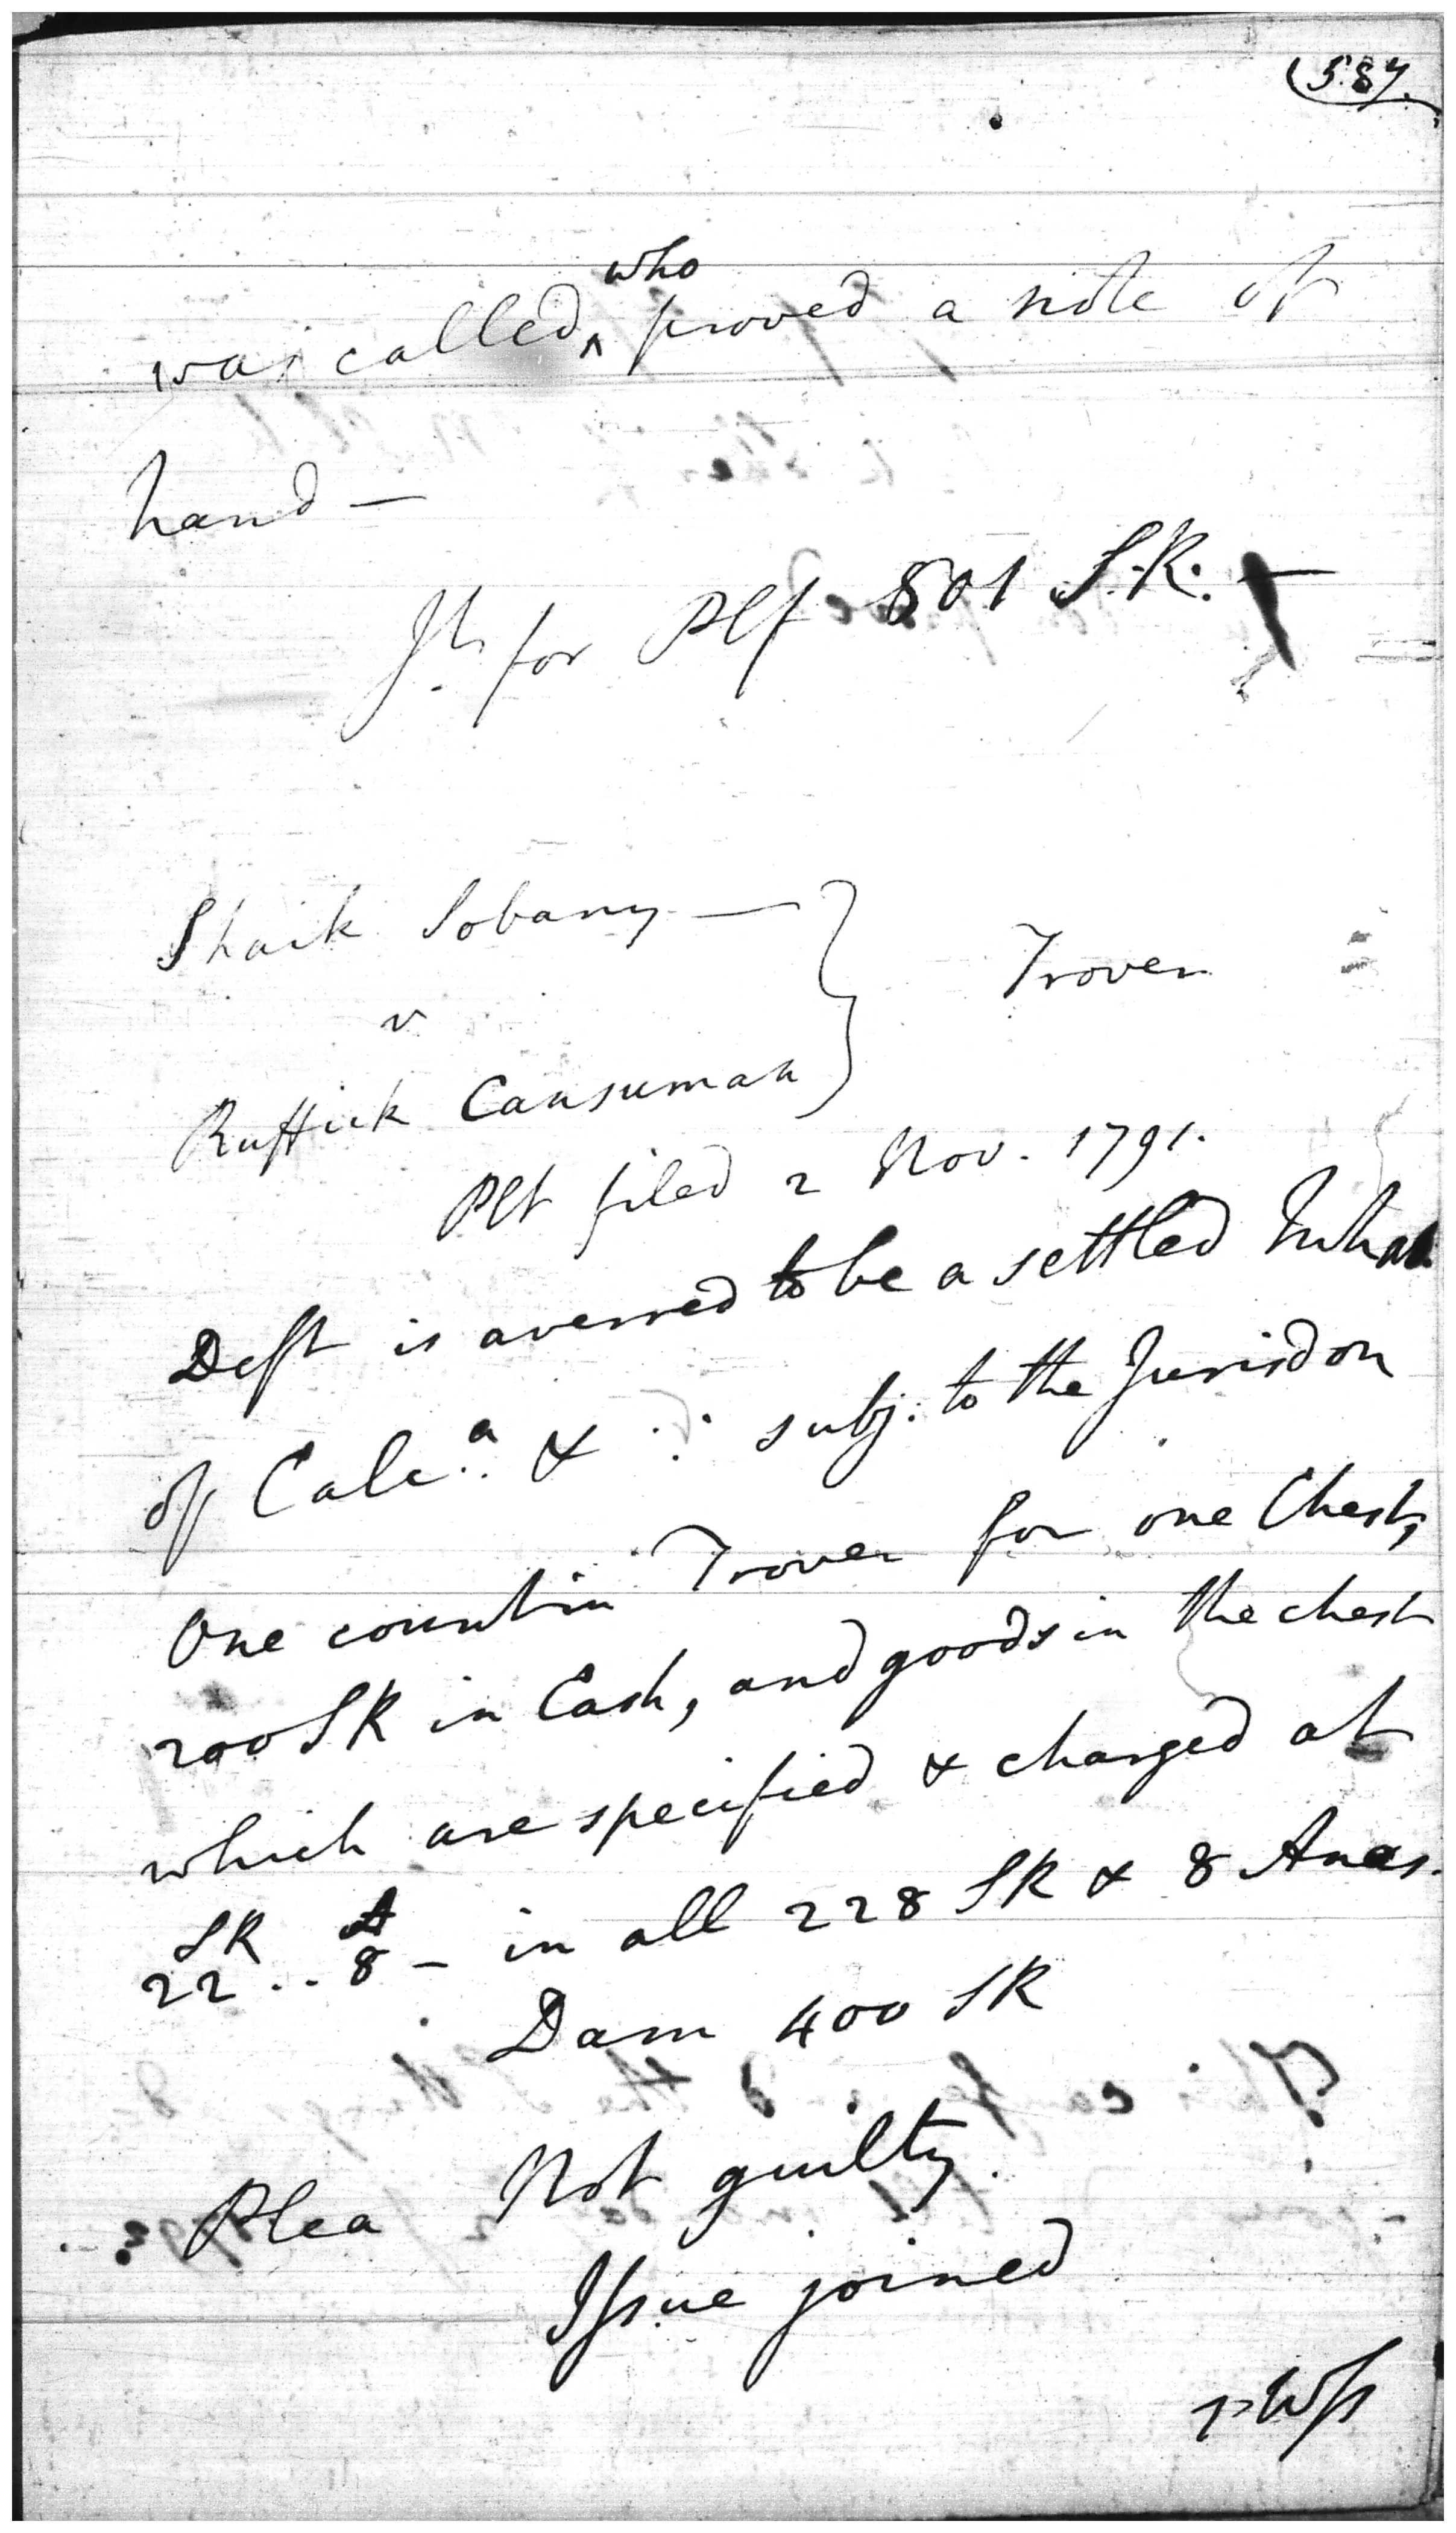 (587.
was called who proved a note of
hand —
Jt. for Plf 501 S.R. —
Shaik Sobany —
v
Trover
Ruffick Cansuman
Plt filed 2 Nov. 1791.
Deft is averred to be a settled Inhab.
of Calc.a & ∵ subj. to the Jurisdon
One count in Trover for one Chest,
200 SR in Cash, and goods in the chest
which are specified & charged at
SR A
22 .. 8 — in all 228 SR & 8 Anas.
Dam 400 SR
Plea Not guilty.
Issue joined
1st Wss